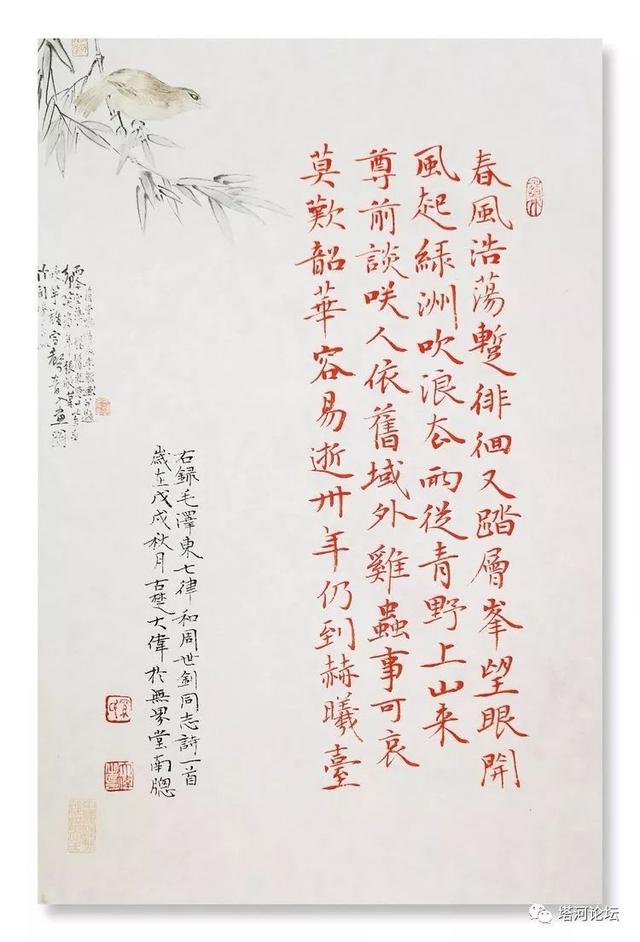 春風浩蕩蹔徘徊又踏層峯望眼開
風起綠洲吹浪去雨從青野上山来
尊前談咲人依舊域外雞蟲事可哀
莫歎韶華容易逝卅年仍到赫曦臺
右錄毛澤東七律和周世釗同志詩一首
歲在戊戌秋月古楚大偉於無界堂南牕
塔河论坛